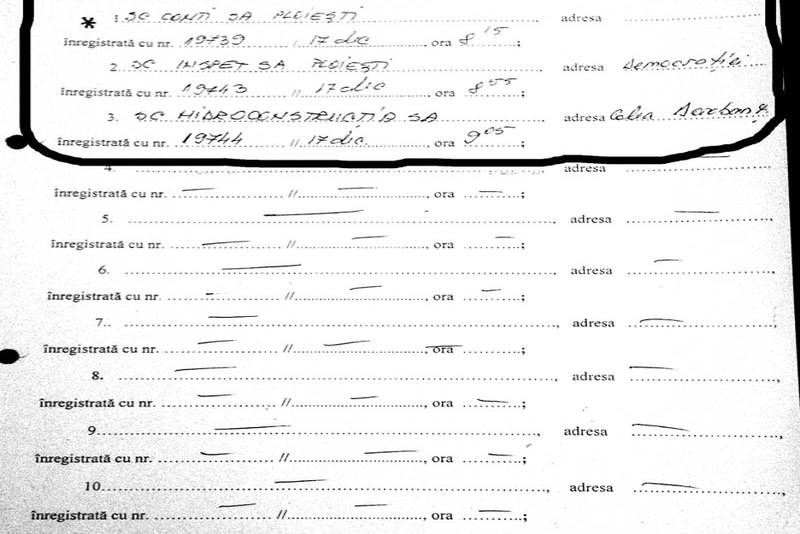 * 1. SC CONTI SA PLOIEȘTI adresa
înregistrată cu nr. 19739 / 17 dic ora 8 15;
2. SC INSPET SA PLOIEȘTI adresa Democrației
înregistrată cu nr. 19743 // 17 dic ora 8 55;
3. SC HIDROCONSTRUCTIA SA adresa Calea
înregistrată cu nr. 19744 // 17 dic. ora 9 05;
4. adresa
înregistrată cu nr. — // —, ora —;
5. — adresa —,
înregistrată cu nr. — // —, ora —;
6. —, adresa —,
înregistrată cu nr. — // —, ora —;
7.. —, adresa —,
înregistrată cu nr. — // —, ora —;
8. —, adresa —,
înregistrată cu nr. — // —, ora —;
9 —, adresa —,
înregistrată cu nr. — // —, ora —;
10 —, adresa —,
înregistrată cu nr. — // —, ora —;